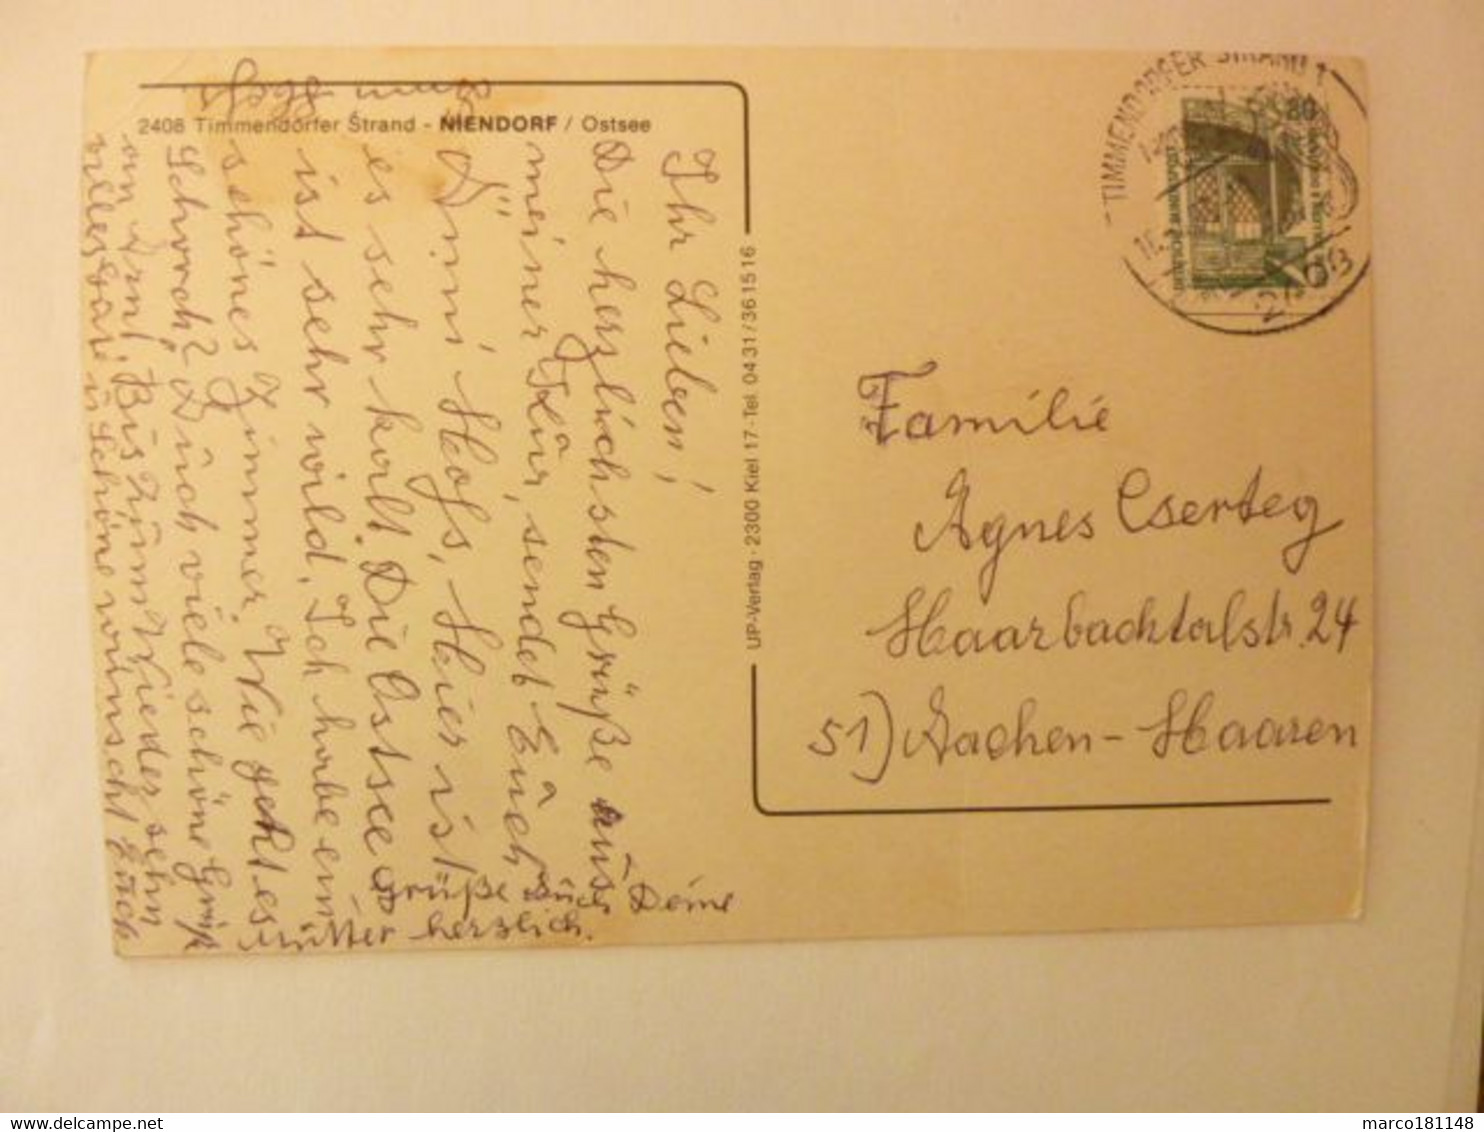 2408 Timmendorfer Strand - NIENDORF / Ostsee
Ihr Lieben!
Die herzlichsten Grüße aus
meiner Kur, sendet Euch
Omi Hofs, Hier ist
es sehr kalt. Die Ostsee
ist sehr wild. Ich habe ein
schönes Zimmer. Wie geht es
Schorch? Auch viele schöne Grüße
an Arnt. Bis zum Wiedersehn
alles Gute u Schöne wünscht Euch
Grüße Euch Deine
Mutter herzlich.
UP-Verlag · 2300 Kiel 17 · Tel. 04 31 / 36 15 16
TIMMENDORFER STRAND 1
2408
80
DEUTSCHE BUNDESPOST
Familie
Agnes Cserteg
Haarbachtalstr. 24
51) Aachen - Haaren
marco181148